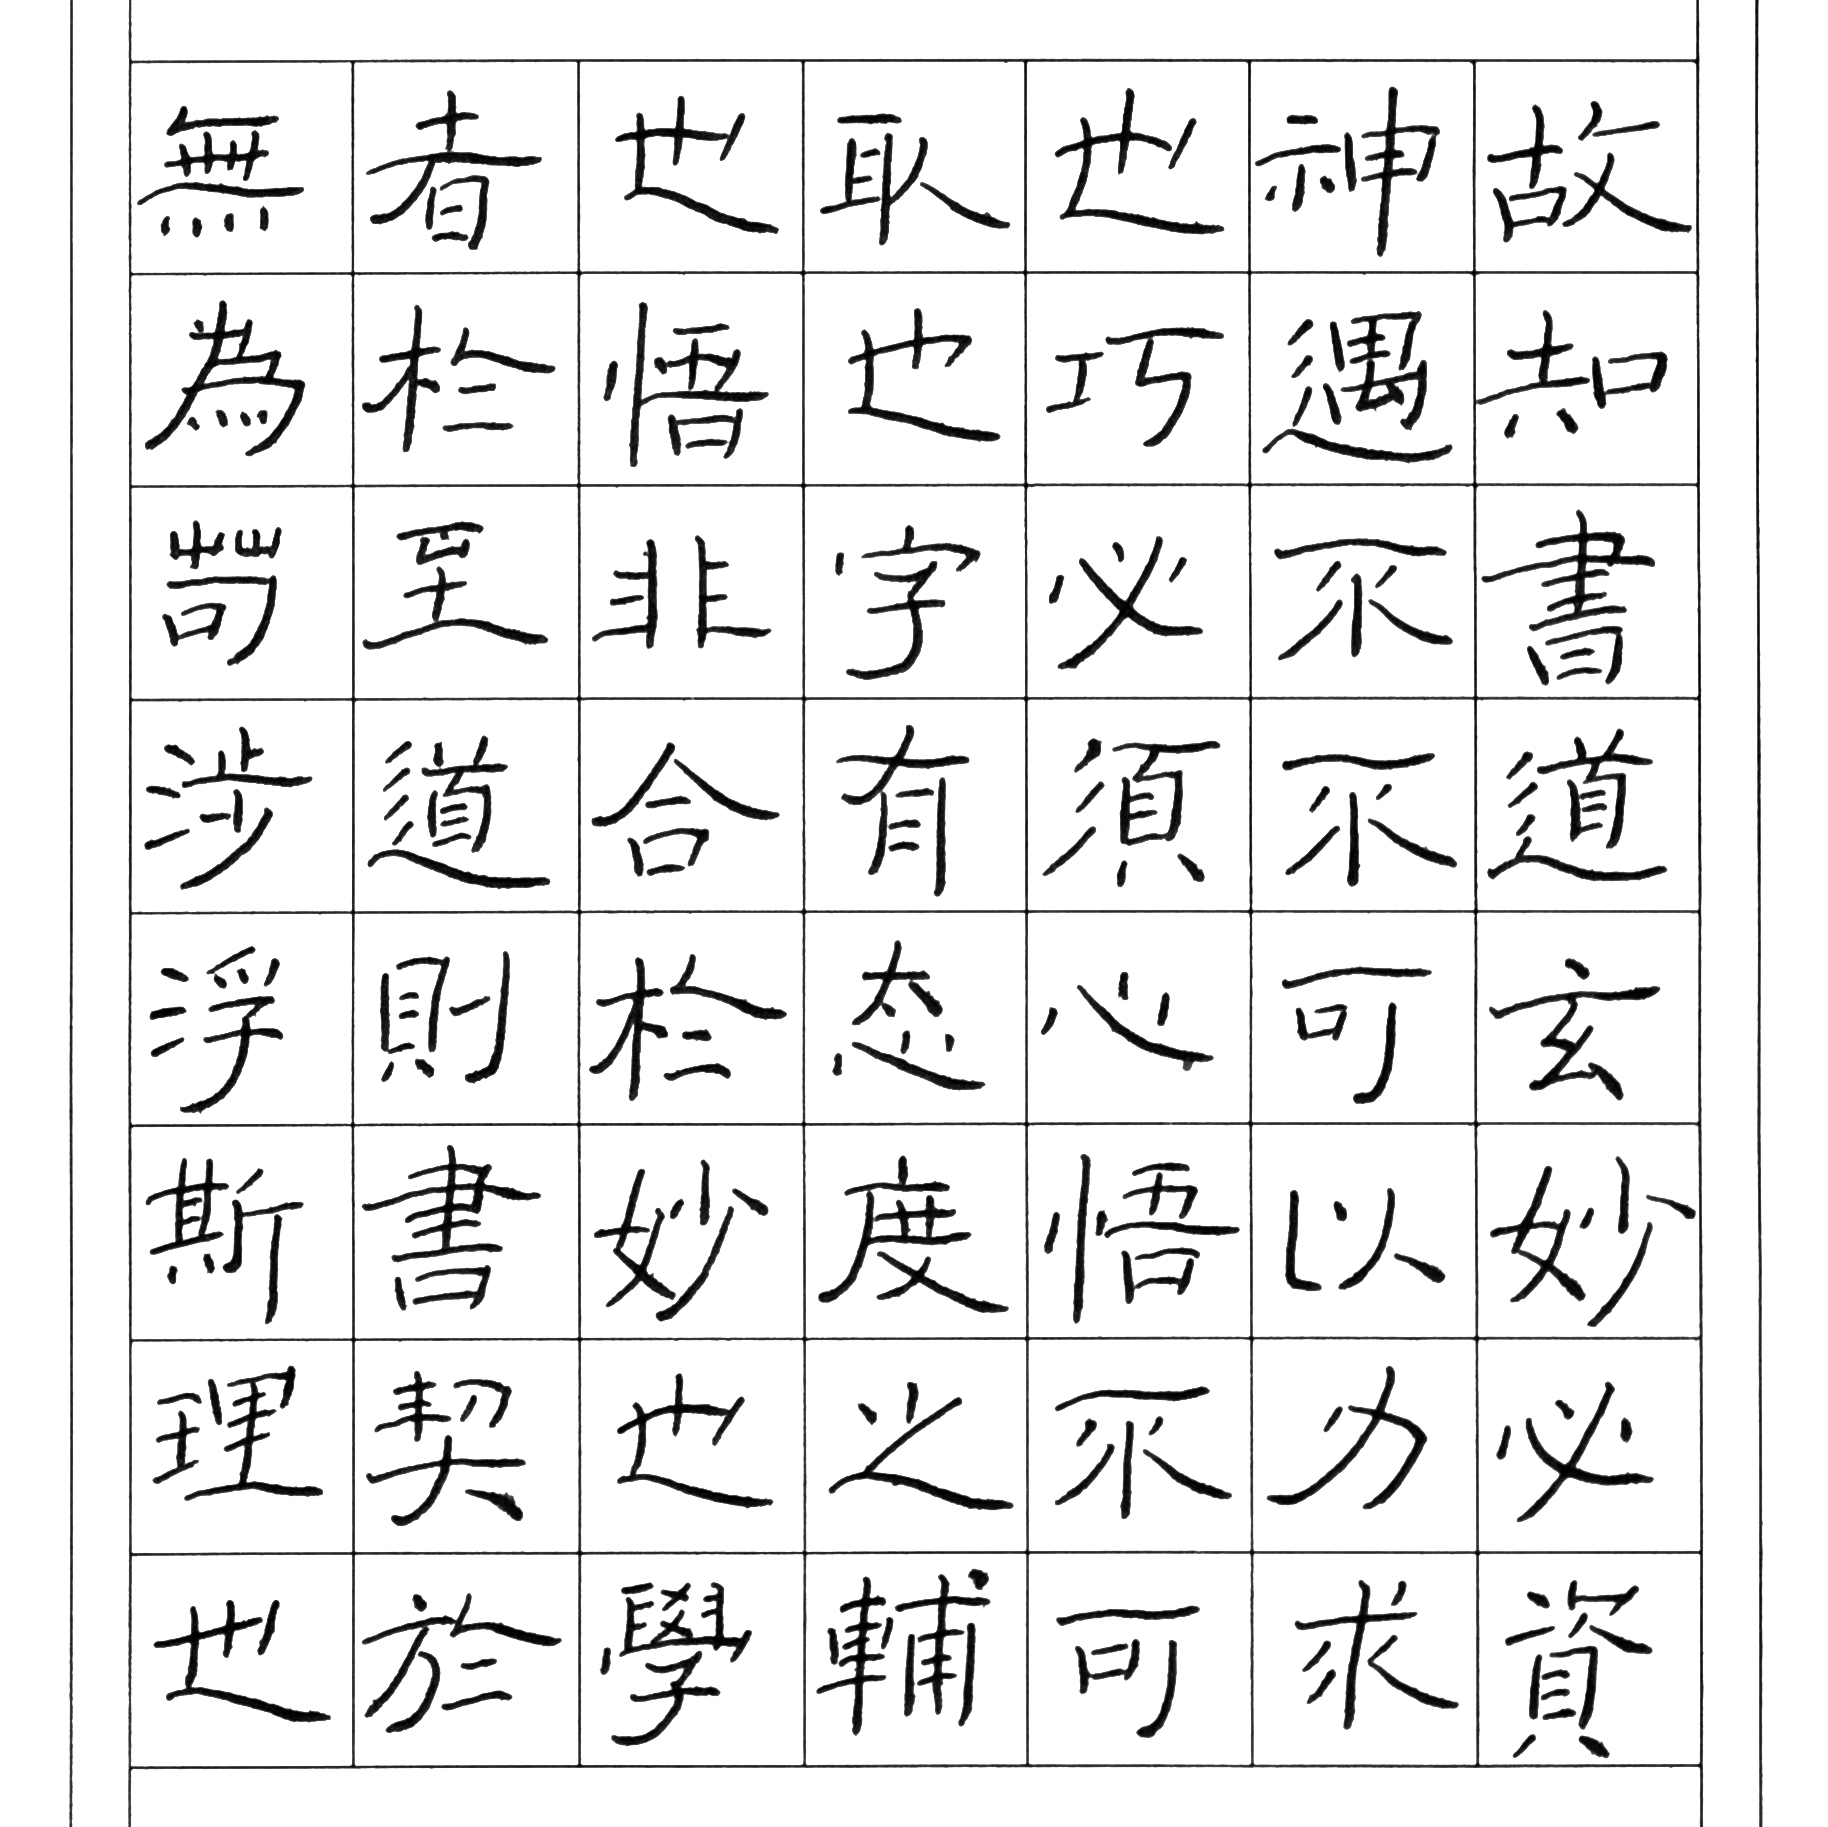 故知書道玄妙必資
神遇不不可以力求
也巧必須心悟不可
取也字有态度之輔
也悟非合於妙也學
者於至道則書契於
無為苟涉浮斯理也